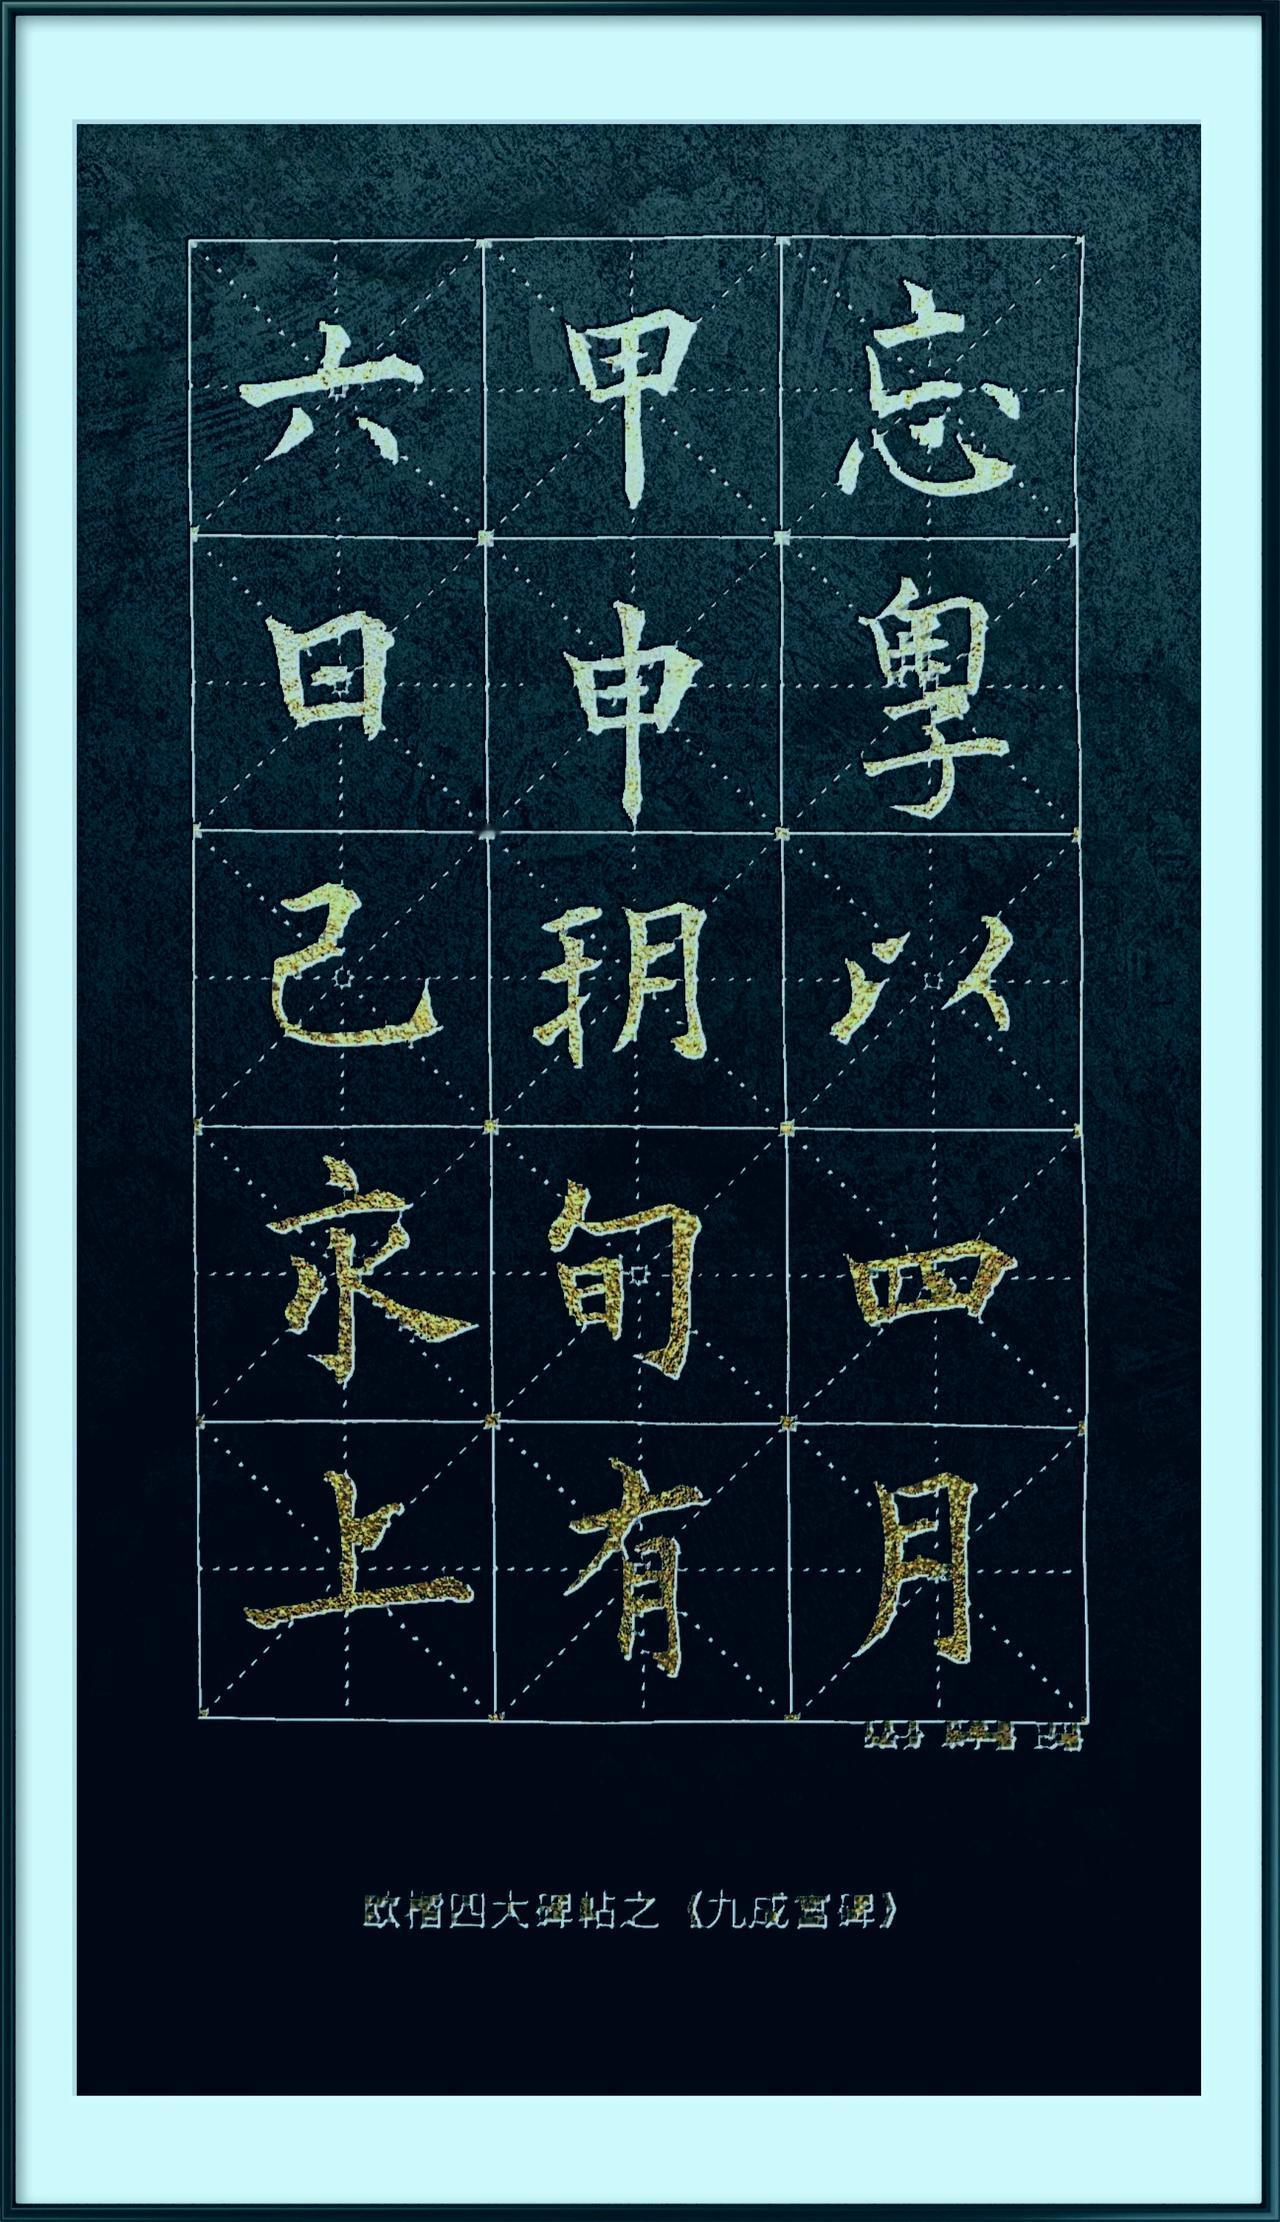 忘粤以四月
甲申朔旬有
六日己亥上
欧楷四大碑帖之《九成宫碑》